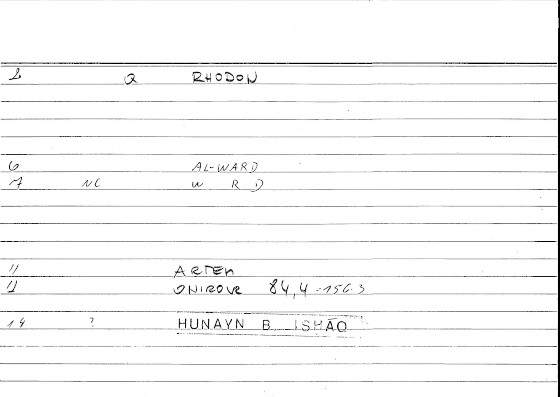 2 Q RHODON
6 AL-WARD
7 NC W R D
11 ARTEM
ONIROVR 84,4-156.3
14 ? HUNAYN B. ISHĀQ